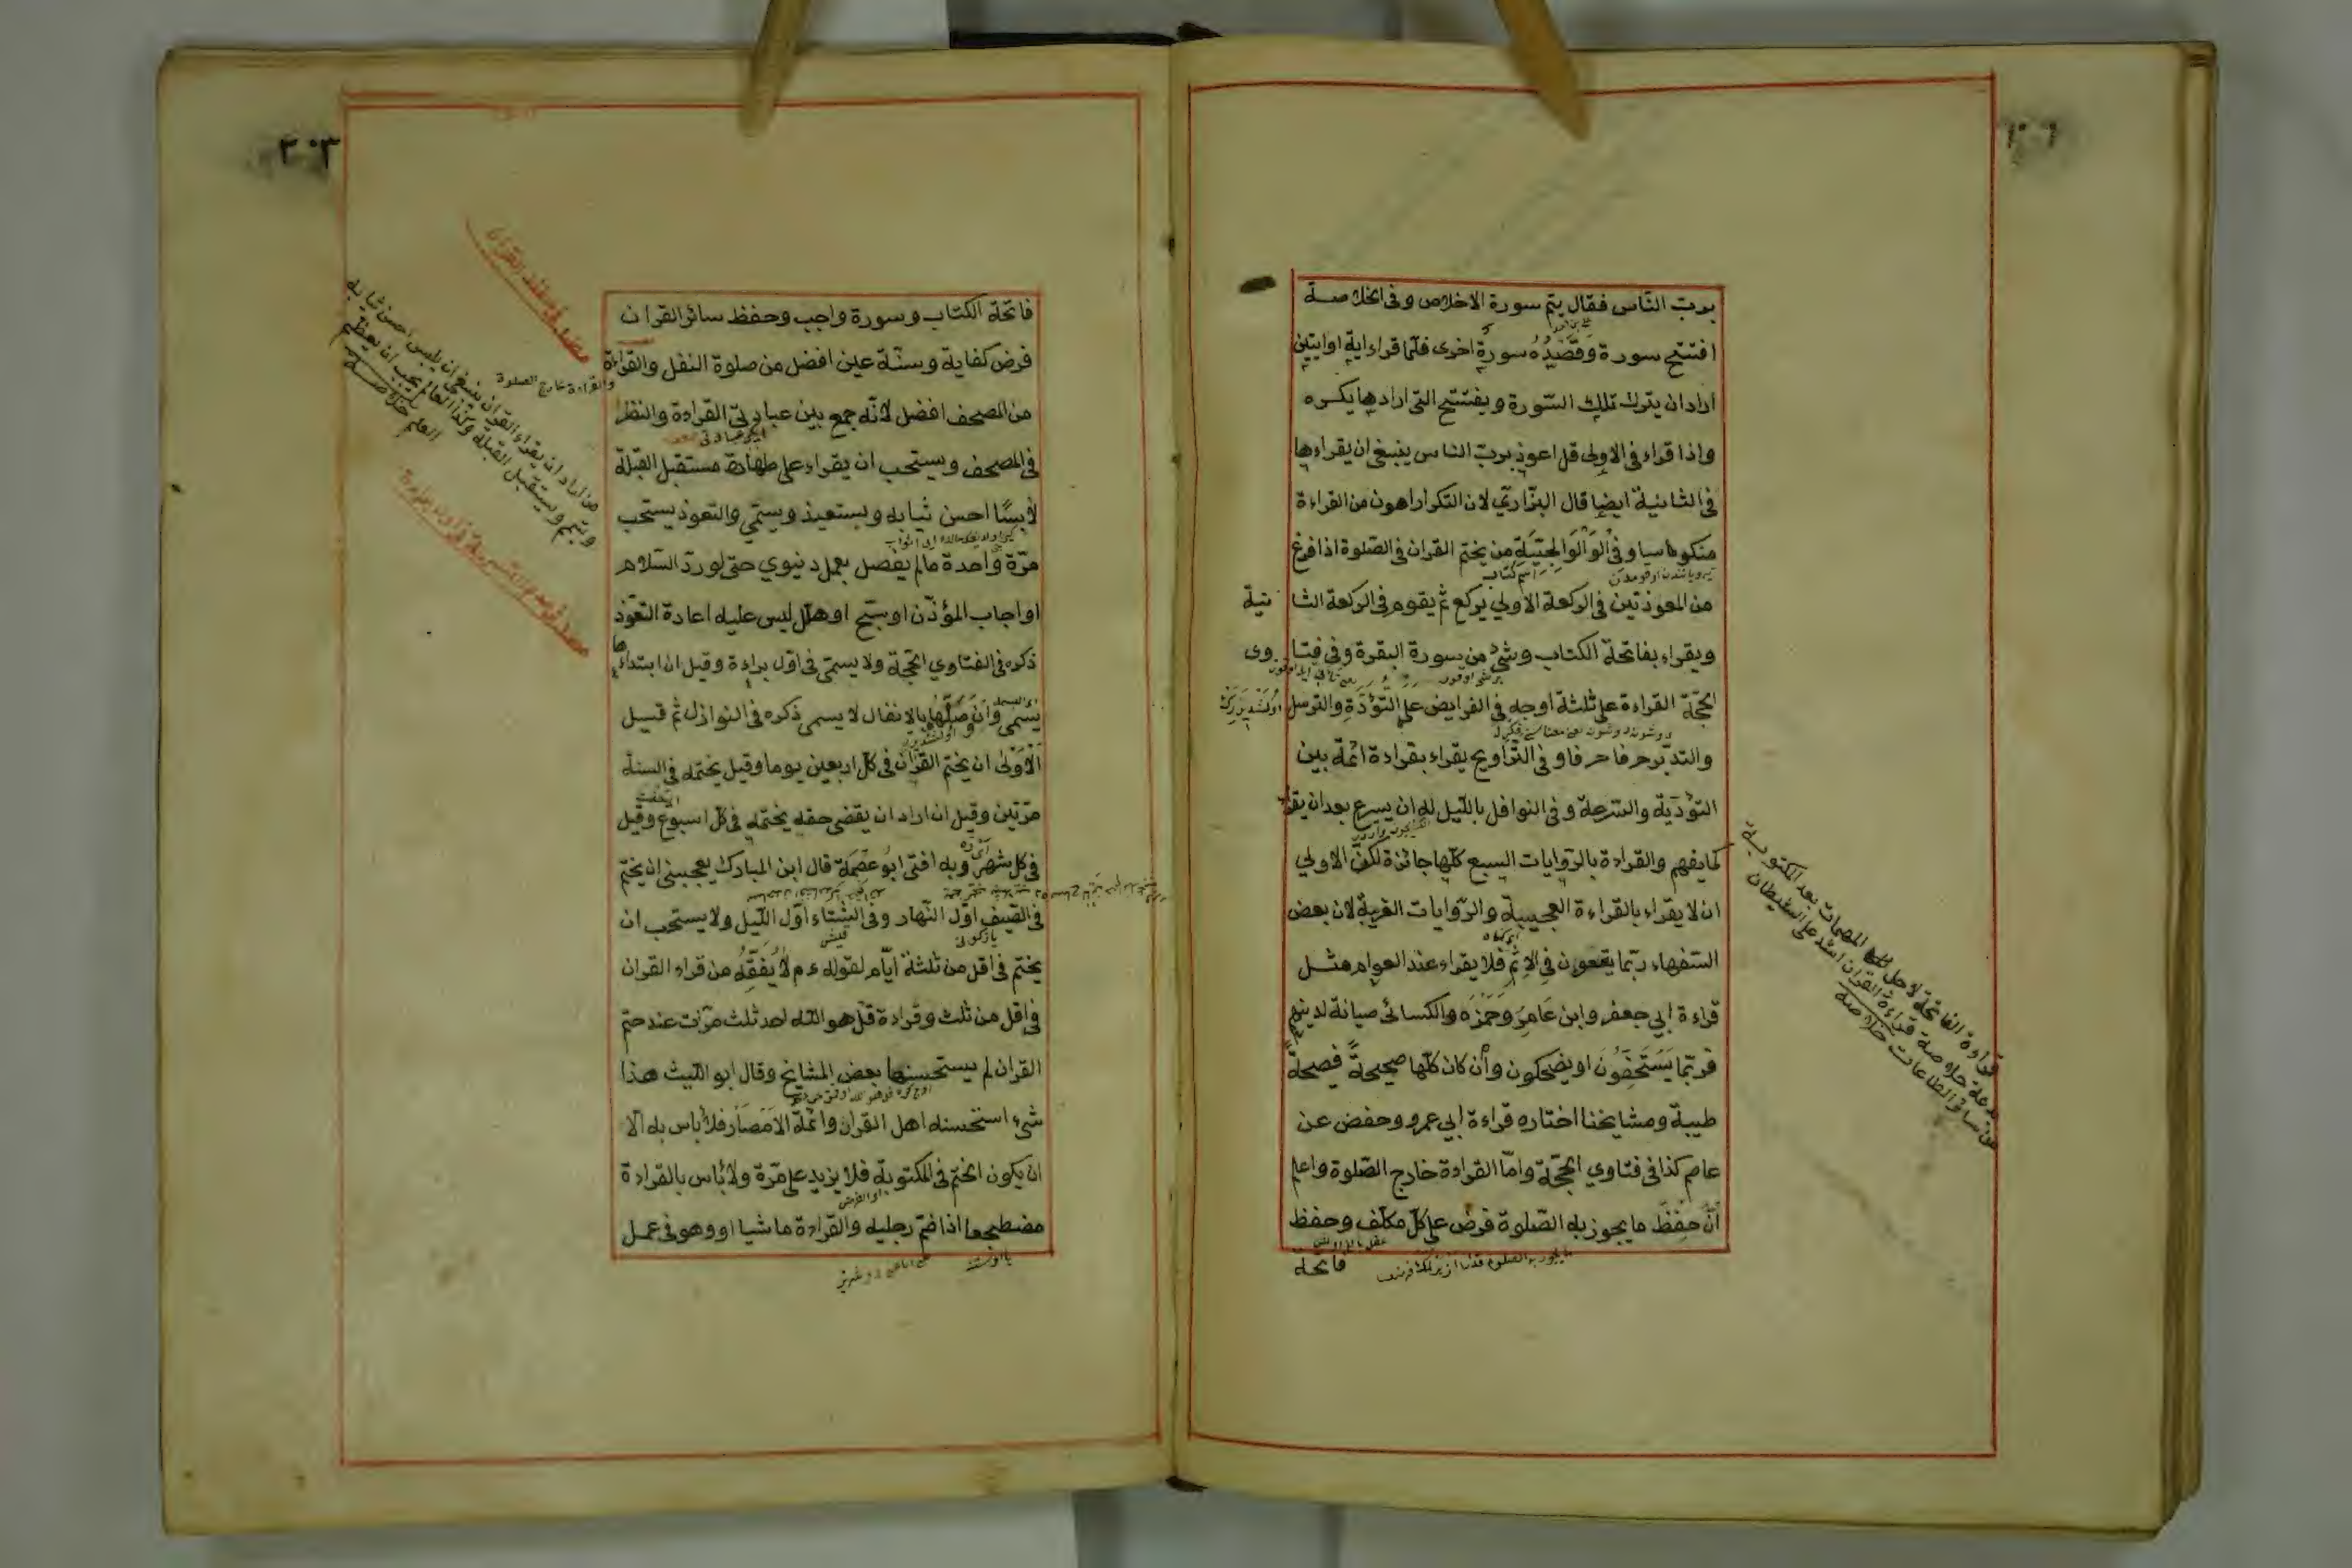 برب الناس فقال يتم سورة الاخلاص وفى الخلاصة
افتتح سورة وَقَصْدُهُ سورة اخرى فلمّا قراء اية او ايتين
اراد ان يترك تلك السّورة ويفتتح التى ارادها يكره
واذا قراء فى الاولى قل اعوذ بربّ الناس ينبغى ان يقراءها
فى الثانية ايضا قال البزّازيّ لان التكرار اهون من القراءة
منكوسا وفى الْوَلْوَالِجِيَّةِ من يختم القران فى الصّلوة اذا فرغ
من المعوذتين فى الركعة الاولي يركع ثم يقوم فى الركعة الثا نية
ويقراء بفاتحة الكتاب وشئ من سورة البقرة وفى فتا وى
الحجّة القراءة على ثلثة اوجه فى الفرايض على التّؤَدَةِ والترسل
والتدبّر حرفا حرفا وفى التّراويح يقراء بقراءة ائمّة بين
التؤدية والسّرعة وفى النوافل بالليل له ان يسرع بعد ان يقراء
كما يفهم والقراءة بالرّوايات السبع كلّها جائزة لكنّ الاولي
ان لا يقراء بالقراءة العجيبة والرّوايات الغريبة لان بعض
السّفهاء ربّما يقعون فى الاثم فلا يقراء عند العوام مثل
قراءة ابي جعفر وابن عَامِرٍ وَحَمْزَه والكسائى صيانة لدينهم
فربّما يَسْتَخِفّوُنَ او يضحكون وأن كان كلّها صحيحةً فصيحة
طيبة ومشايخنا اختاره قراءة ابي عمرو وحفص عن
عاصم كذا فى فتاوي الحجّة وامّا القراءة خارج الصّلوة واعلم
أنّ حِفْظَ ما يجوز به الصّلوة فرض على كلّ مكلّف وحفظ
فاتحة
قراءة الفاتحة لاجل المهمات بعد المكتوبة
بدعة خلاصة قراءة القران اشد على الشيطان
من سائر الطاعات خلاصة
٣٠٣
فاتحة الكتاب وسورة واجب وحفظ سائر القران
فرض كفاية وسنّة عين افضل من صلوة النفل والقراءة
من المصحف افضل لانّه جمع بين عبادتى القراءة والنظر
فى المصحف ويستحب ان يقراء على طهارة مستقبل القبلة
لابسًا احسن ثيابه ويستعيذ ويسمّي والتعوذ يستحب
مرّة واحدة مالم يفصل بعمل دنيوي حتى لو ردّ السّلام
او اجاب المؤذّن او سبّح او هلّل ليس عليه اعادة التعوّذ
ذكره فى الفتاوي الحجّة ولا يسمّى فى اوّل براءة وقيل ان ابتداءها
يسمى وان وصلها بالانفال لا يسمى ذكره فى النوازل ثم قيل
اَلْاَوْلىٰ ان يختم القرآن فى كل اربعين يوما وقيل يختمه فى السنة
مرّتين وقيل ان اراد ان يقضى حقه يختمه فى كلّ اسبوع وقيل
فى كل شهر وبه افتى ابُو عصْمَة قال ابن المبارك يعجبنى ان يختم
فى الصّيف اوّل النّهار وفى الشّتاء اوّل اللّيل ولا يستحب ان
يختم فى اقل من ثلثة ايّام لقوله ءم لا يَفْقَهُ من قراء القران
فى اقل من ثلث وقراءة قل هو الله احد ثلث مرّات عند ختم
القران لم يستحسنها بعض المشايخ وقال ابو اللّيث هذا
شئ استحسنه اهل القران وائمّة الامْصَار فلا باس به الّا
ان يكون الختم فى المكتوبة فلا يزيد على مرّة ولا باس بالقراءة
مضطجعا اذا ضم رجليه والقراءة ماشيا او وهو فى عمل
والقراءة خارج الصلوة
من اراد ان يقراء القران ينبغى ان يلبس احسن ثيابه
ويتعمم ويستقبل القبلة وكذا العالم يجب ان يعظم
العلم خلاصه